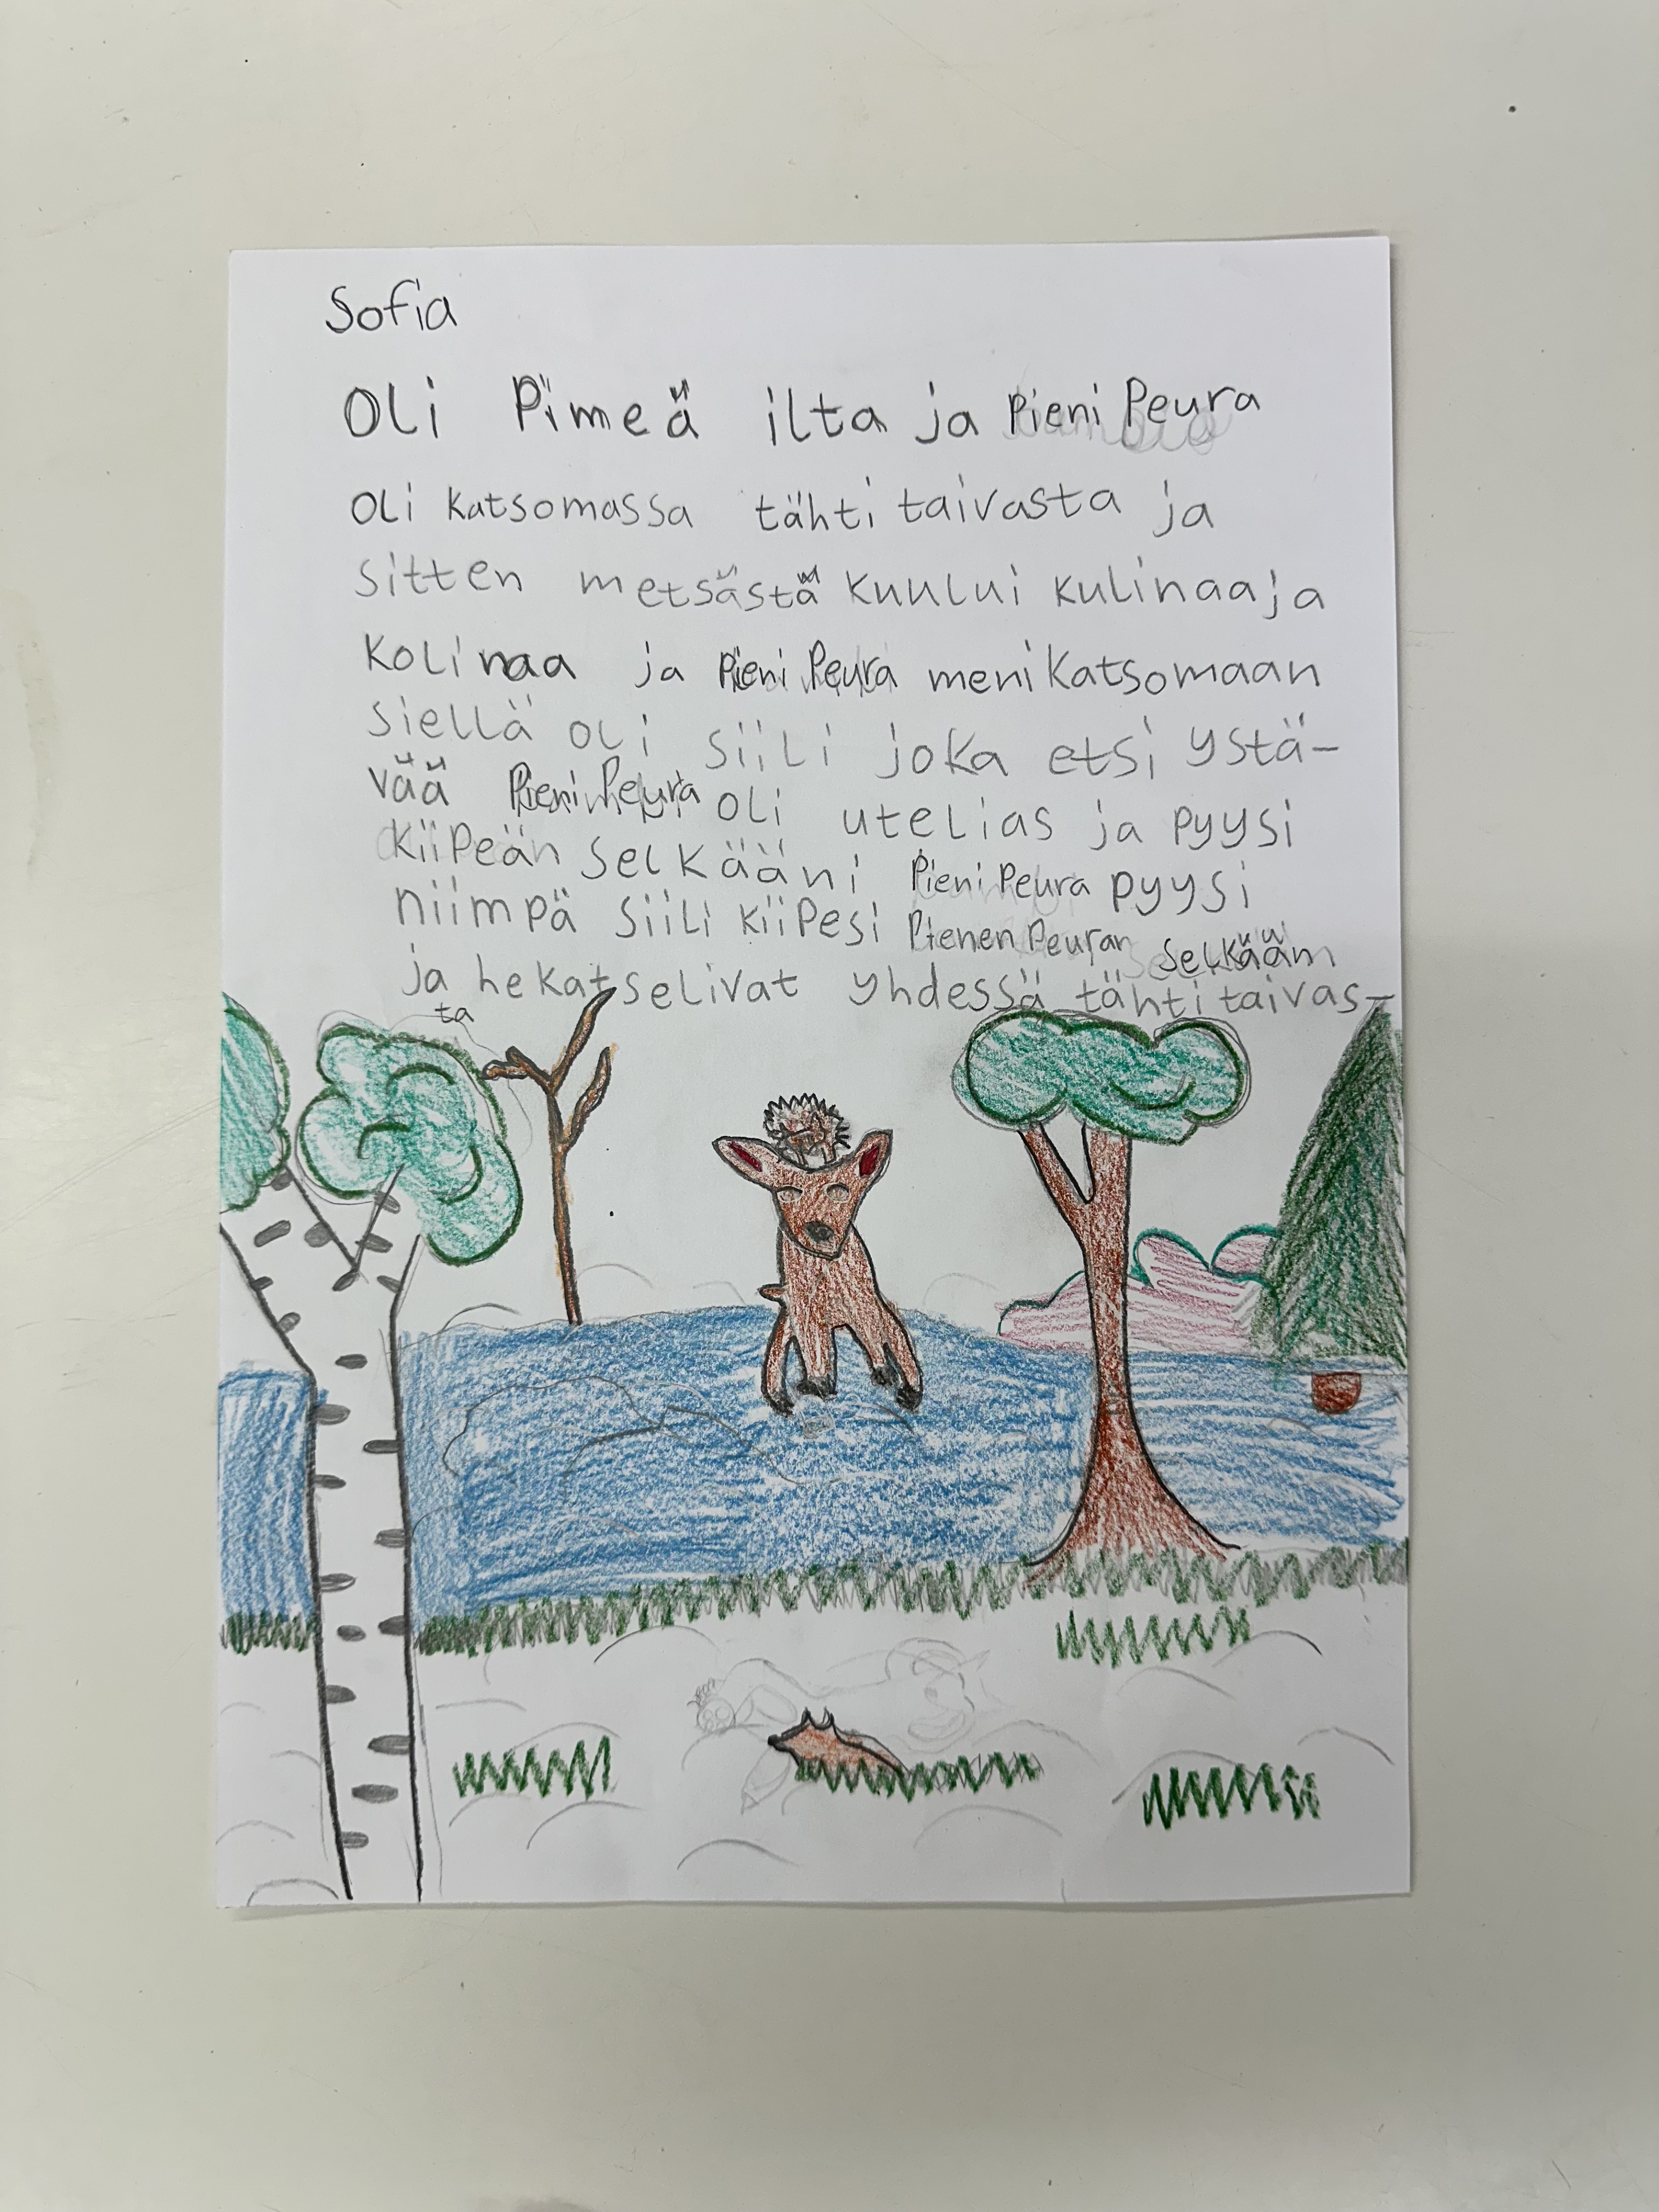 Sofia
Oli Pimeä ilta ja Pieni Peura
oli katsomassa tähti taivasta ja
sitten metsästä kuului kulinaa ja
kolinaa ja Pieni Peura meni katsomaan
siellä oli siili joka etsi ystä-
vää Pieni Peura oli utelias ja pyysi
kiipeän selkääni Pieni Peura pyysi
niimpä siili kiipesi Pienen Peuran selkääm
ja he katselivat yhdessä tähti taivas-
ta